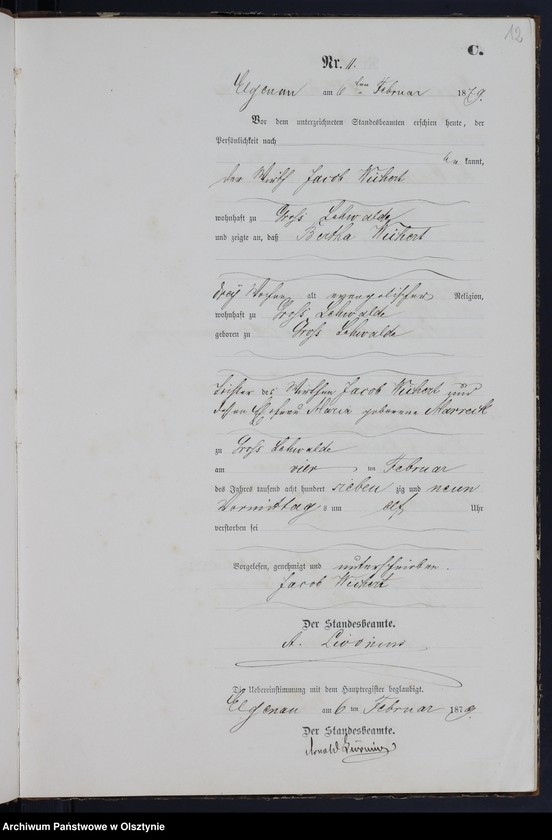 12
C.
Nr. 11.
Elgenau am 6ten Februar 1879.
Vor dem unterzeichneten Standesbeamten erschien heute, der
Persönlichkeit nach
be kannt,
der Wirth Jacob Wichert
wohnhaft zu Groß Lehwalde
und zeigte an, daß Bertha Wichert
drei Wochen alt evangelischer Religion,
wohnhaft zu Groß Lehwalde
geboren zu Groß Lehwalde
Tochter des Wirthen Jacob Wichert und
dessen Ehefrau Maria geborene
zu Groß Lehwalde
am vier ten Februar
des Jahres tausend acht hundert sieben zig und neun
Vormittag s um elf Uhr
verstorben sei
Vorgelesen, genehmigt und unterschrieben.
Jacob Wichert
Der Standesbeamte.
A.
Die Uebereinstimmung mit dem Hauptregister beglaubigt.
Elgenau am 6 ten Februar 1879.
Der Standesbeamte.
Arnold
Archiwum Państwowe w Olsztynie